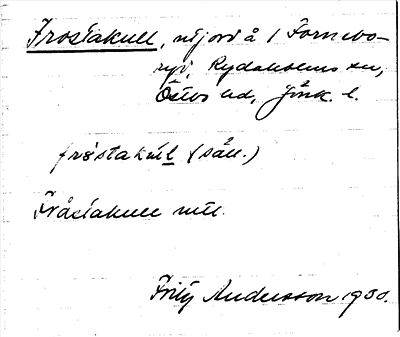 Frostakull, utjord å 1 Fornebo-
ryd, Rydaholms sn,
Östbo hd, Jönk. l.
frøstakúl (säll.)
Fråstakull utl.
Fritz Andersson 1930.